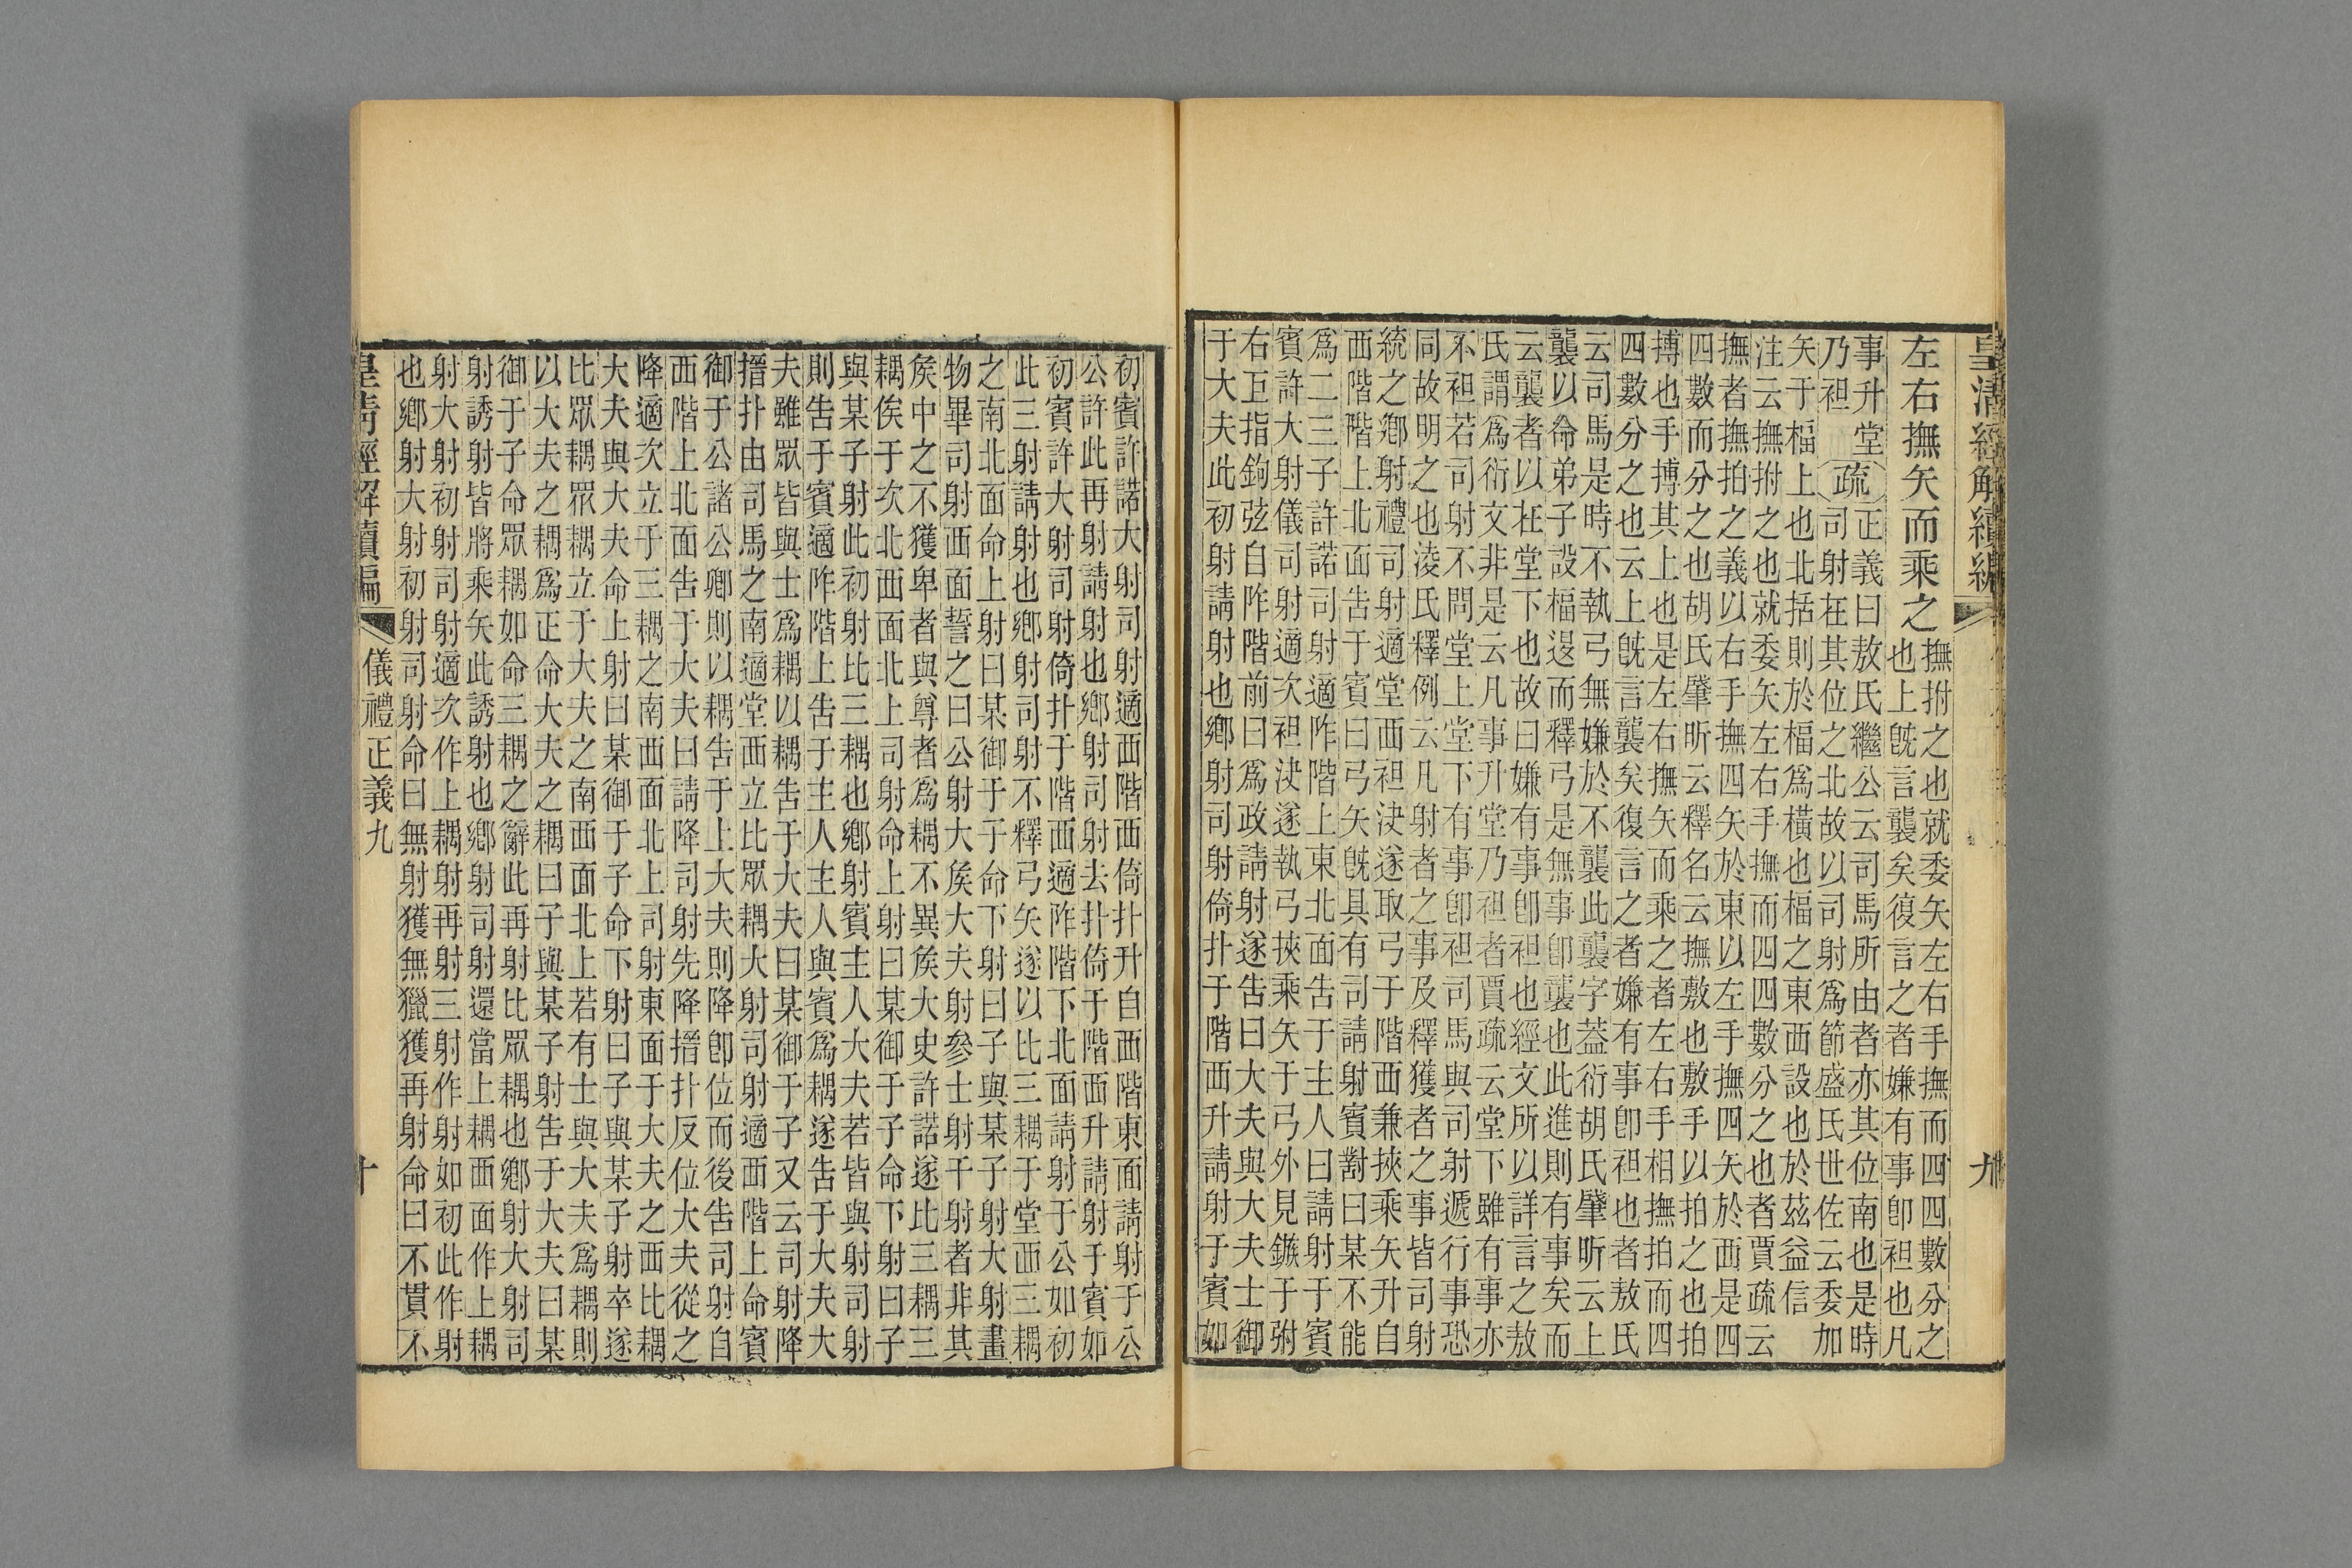 皇清經解續編
九
左右撫矢而乘之
撫拊之也就委矢左右手撫而四四數分之
也上旣言襲矣復言之者嫌有事卽袒也凡
事升堂
乃袒
疏
正義曰敖氏繼公云司馬所由者亦其位南也是時
司射在其位之北故以司射爲節盛氏世佐云委加
矢于楅上也北括則於楅爲橫也楅之東西設也於茲益信
注云撫拊之也就委矢左右手撫而四四數分之也者賈疏云
撫者撫拍之義以右手撫四矢於東以左手撫四矢於西是四
四數而分之也胡氏肇昕云釋名云撫敷也敷手以拍之也拍
搏也手搏其上也是左右撫矢而乘之者左右手相撫拍而四
四數分之也云上旣言襲矣復言之者嫌有事卽袒也者敖氏
云司馬是時不執弓無嫌於不襲此襲字葢衍胡氏肇昕云上
襲以命弟子設楅遂而釋弓是無事卽襲也此進則有事矣而
云襲者以在堂下也故曰嫌有事卽袒也經文所以詳言之敖
氏謂爲衍文非是云凡事升堂乃袒者賈疏云堂下雖有事亦
不袒若司射不問堂上堂下有事卽袒司馬與司射遞行事恐
同故明之也淩氏釋例云凡射者之事及釋獲者之事皆司射
統之鄉射禮司射適堂西袒決遂取弓于階西兼挾乘矢升自
西階階上北面告于賓曰弓矢旣具有司請射賓對曰某不能
爲二三子許諾司射適阼階上東北面告于主人曰請射于賓
賓許大射儀司射適次袒決遂執弓挾乘矢于弓外見鏃于弣
右巨指鉤弦自阼階前曰爲政請射遂告曰大夫與大夫士御
于大夫此初射請射也鄉射司射倚扑于階西升請射于賓如
初賓許諾大射司射適西階西倚扑升自西階東面請射于公
公許此再射請射也鄉射司射去扑倚于階西升請射于賓如
初賓許大射司射倚扑于階西適阼階下北面請射于公如初
此三射請射也鄉射司射不釋弓矢遂以比三耦于堂西三耦
之南北面命上射曰某御于子命下射曰子與某子射大射畫
物畢司射西面誓之曰公射大矦大夫射參士射干射者非其
矦中之不獲卑者與尊者爲耦不異矦大史許諾遂比三耦三
耦俟于次北西面北上司射命上射曰某御于子命下射曰子
與某子射此初射比三耦也鄉射賓主人大夫若皆與射司射
則告于賓適阼階上告于主人主人與賓爲耦遂告于大夫大
夫雖眾皆與士爲耦以耦告于大夫曰某御于子又云司射降
搢扑由司馬之南適堂西立比眾耦大射司射適西階上命賓
御于公諸公卿則以耦告于上大夫則降卽位而後告司射自
西階上北面告于大夫曰請降司射先降搢扑反位大夫從之
降適次立于三耦之南西面北上司射東面于大夫之西比耦
大夫與大夫命上射曰某御于子命下射曰子與某子射卒遂
比眾耦眾耦立于大夫之南西面北上若有士與大夫爲耦則
以大夫之耦爲正命大夫之耦曰子與某子射告于大夫曰某
御于子命眾耦如命三耦之辭此再射比眾耦也鄉射大射司
射誘射皆將乘矢此誘射也鄉射司射還當上耦西面作上耦
射大射初射司射適次作上耦射再射三射作射如初此作射
也鄉射大射初射司射命曰無射獲無獵獲再射命曰不貫不
皇清經解續編
儀禮正義九
十